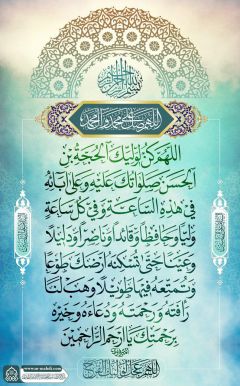 بسم الله الرحمن الرحيم
اللهم صل على محمد وآل محمد
اَللّهُمَّ كُنْ لِوَلِيِّكَ الْحُجَّةِ بْنِ
الْحَسَنِ صَلَواتُكَ عَلَيْهِ وَعَلى آبائِهِ
في هذِهِ السّاعَةِ وَفي كُلِّ ساعَةٍ
وَلِيّاً وَحافِظاً وَقائِداً وَناصِراً وَدَليلاً
وَعَيْناً حَتّى تُسْكِنَهُ اَرْضَكَ طَوْعاً
وَتُمَتِّعَهُ فيها طَويلاً وَهَبْ لَنا
رَأْفَتَهُ وَرَحْمَتَهُ وَدُعاءَهُ وَخَيْرَهُ
بِرَحْمَتِكَ يا اَرْحَمَ الرّاحِمينَ
اللهم عجل لوليك الفرج